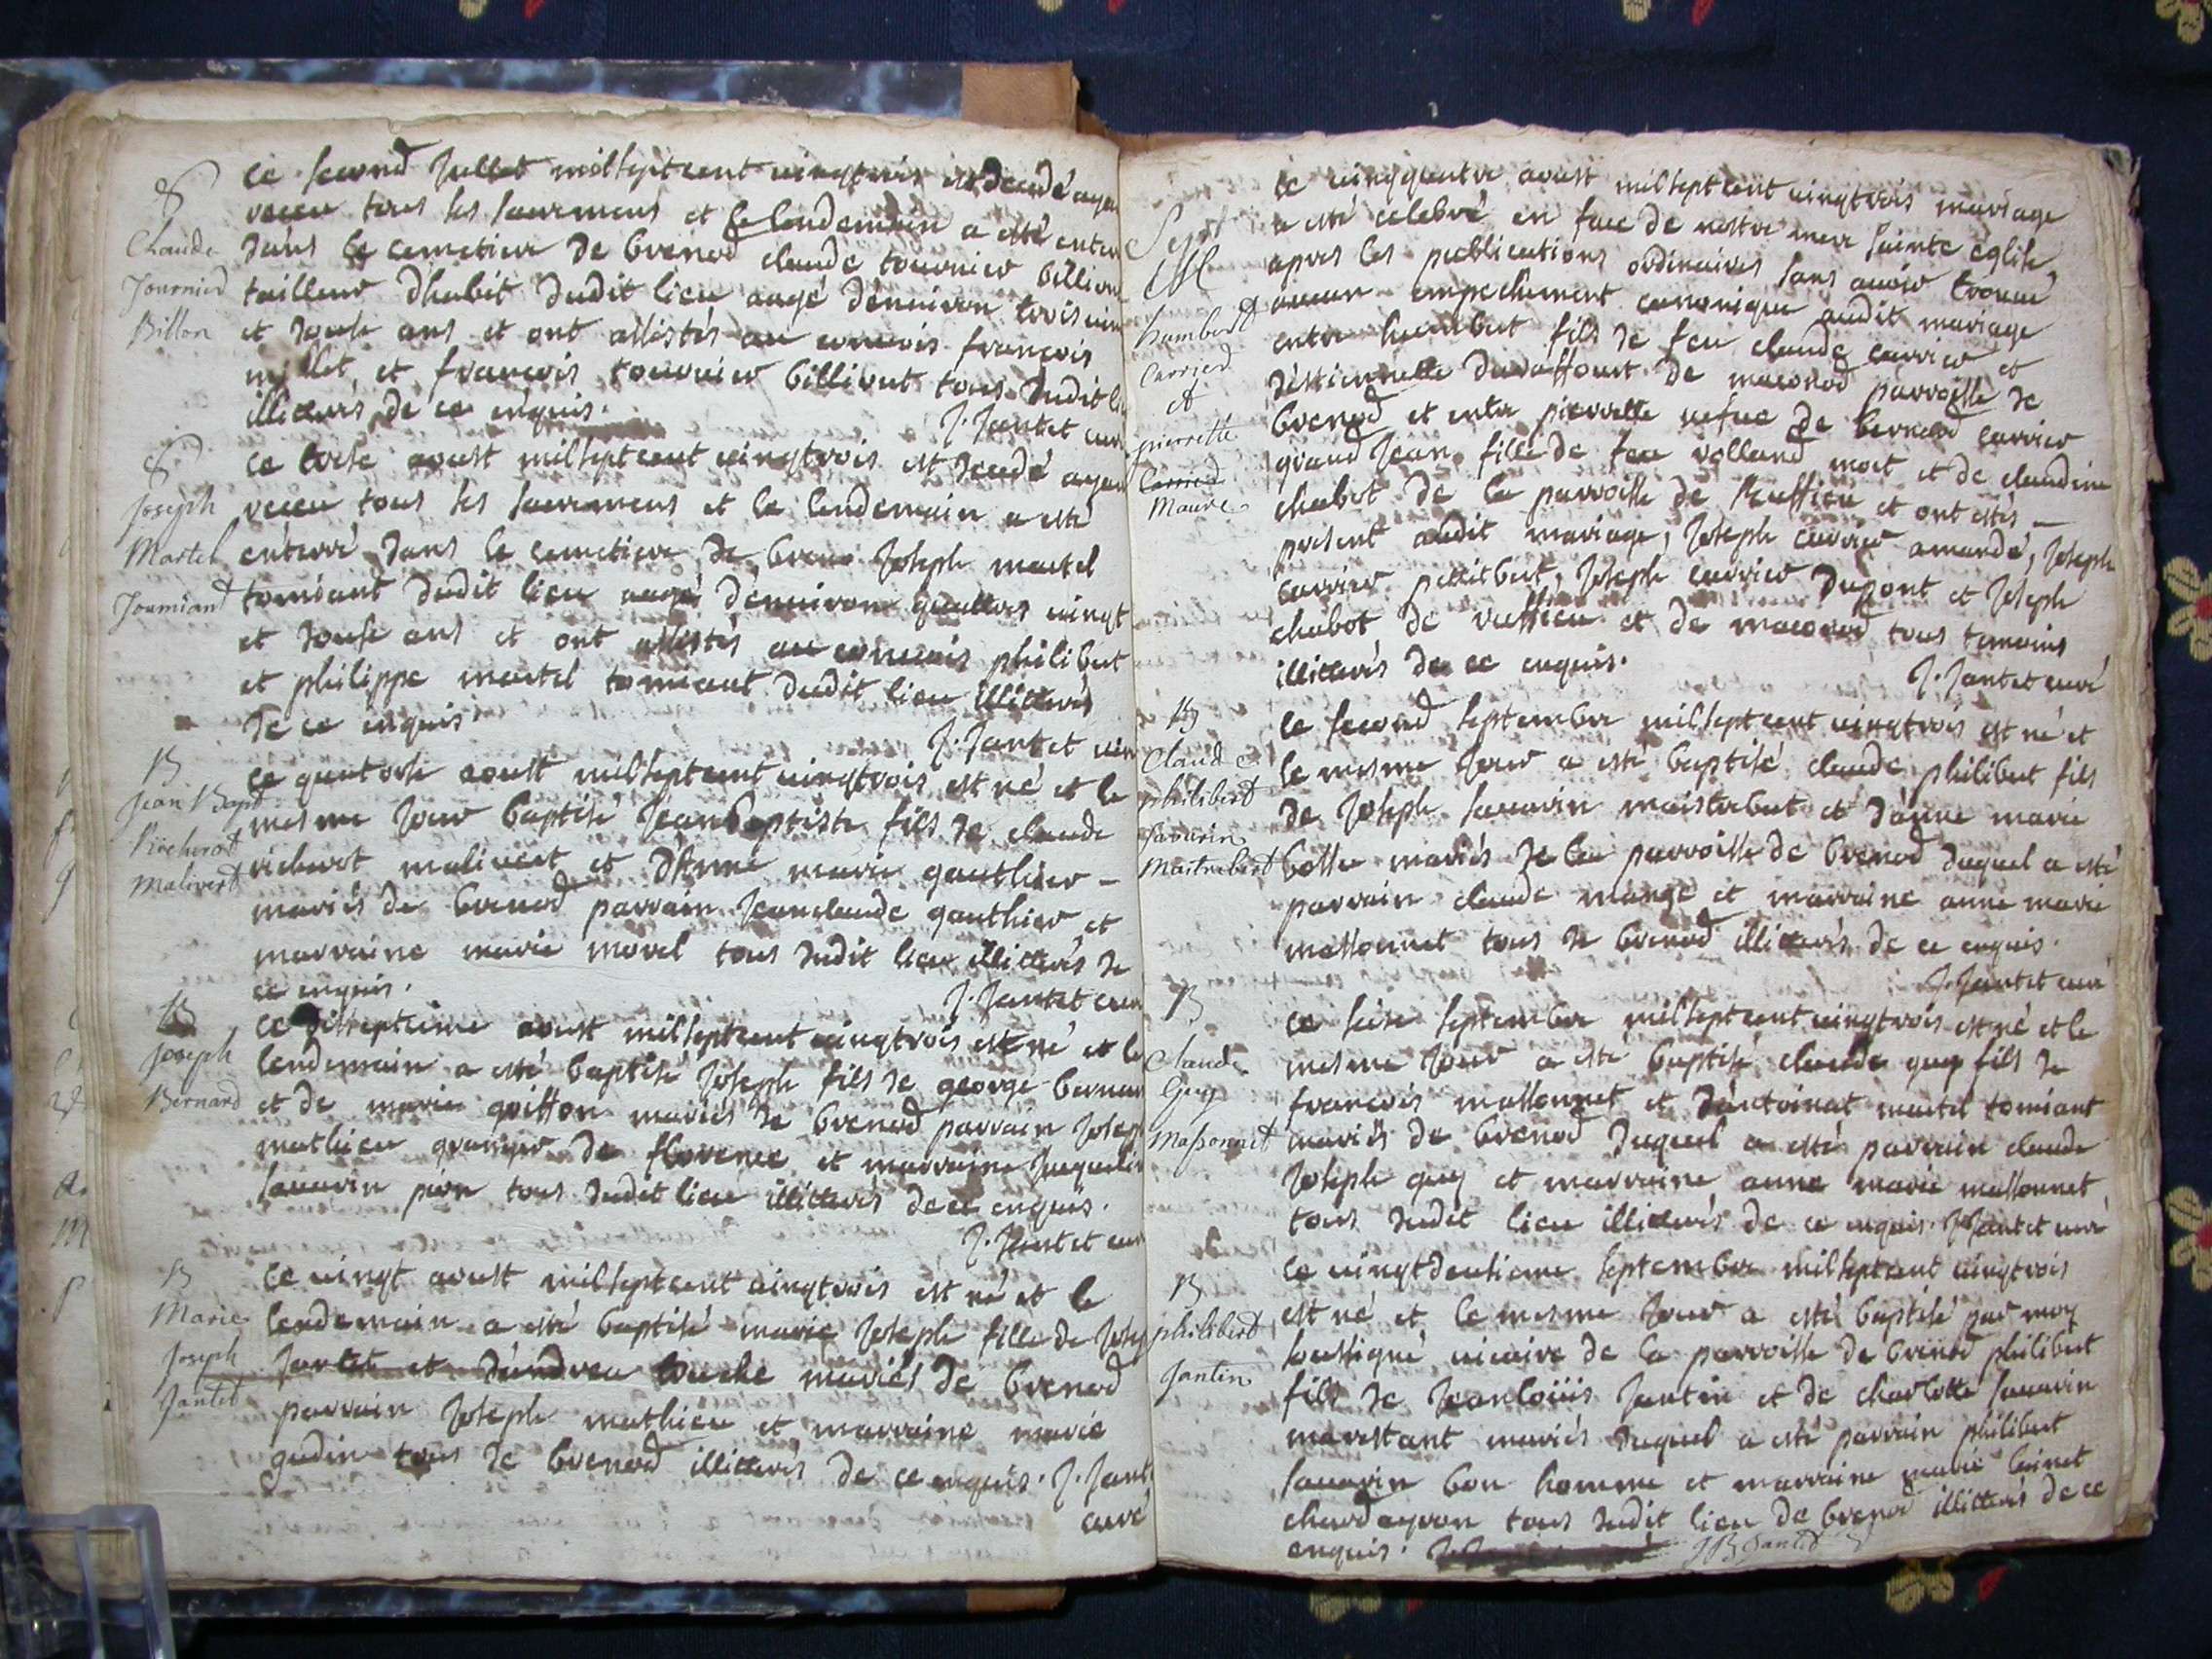 S
Claude
Tournier
Billon
ce second Jullet milseptcent vingttrois est decedé ayan
receu tous les sacremens et le lendemain a esté enter
dans le cemetiere de brenod claude tournier billion
tailleur dhabit dudit lieu aagé dénuiron trois vin
et douse ans et ont assistés au conuois francois
millet et francois tournier billiout tous dudit li
illiterés de ce enquis.
J. Jantet cur
S
Joseph
Martel
Tourniant
ce treise aoust milseptcent vingttrois est decedé ayan
receu tous les sacremens et le lendemain a esté
enterré dans le cemetiere de breno Joseph martel
torniant dudit lieu aagé dénuiron quattres vingt
et douse ans et ont assistés au conuois philibert
et philippe martel torniant dudit lieu illiterés
de ce enquis.
J. Jantet cur
B
Jean Bapt
Richerot
Malivert
ce quatorse aoust milseptcent vingttrois est né et le
mesme Jour baptisé Jean baptiste fils de claude
richerot malivert et d'Anne marie gauthier –
mariés de brenod parrain Jeanclaude gauthier et
marraine marie morel tous dudit lieu illiterés de
ce enquis.
J. Jantet cur
B
Joseph
Bernard
ce dixseptieme aoust milseptcent vingttrois est né et le
lendemain a esté baptisé Joseph fils de george bernar
et de marie goisson mariés de brenod parrain Josep
mathieu de florence et marraine Jacqueli
sauarin tous dudit lieu illiterés de ce enquis.
J. Jantet cur
B
Marie
Joseph
Jantet
ce vingt aoust milseptcent vingttrois est né et le
lendemain a esté baptisé marie Joseph fille de Jose
Jantet et d'andrea touche mariés de brenod
parrain Joseph mathieu et marraine marie
gudin tous de brenod illiterés de ce enquis. J. Jant
curé
Sept
M
humbert
Carrier
et
pierrette
Carrier
Maure
ce vingquatre aoust milseptcent vingttrois mariage
a esté celebré en face de nostre mere sainte église
apres les publications ordinaires sans auoir trouué
aucun empechement canonique audit mariage
entre humbert fils de feu claude carrier et
d'estiennette duraffourt de maconod parroisse de
brenod et entre pierrette vefue de bernard carrier
grand Jean, fille de feu rolland moet et de claudine
chabot de la parroisse de Ruffieu et ont estés –
present audit mariage, Joseph carrier amandé, Joseph
carrier petitbert, Joseph carrier dupont et Joseph
chabot de ruffieu et de maconod tous temoins
illiterés de ce enquis.
J. Jantet curé
B
Claude
philibert
Savarin
Maitrebert
le second septembre milseptcent vingttrois est né et
le mesme Jour a esté baptisé claude philibert fils
de Joseph sauarin maistrebert et d'anne marie
bosse mariés de la parroisse de brenod duquel a esté
parrain claude mange et marraine anne marie
massonnet tous de brenod illiterés de ce enquis.
J. Jantet curé
B
Claude
Guy
Massonnet
ce seise septembre milseptcent vingttrois est né et le
mesme Jour a esté baptisé claude guy fils de
francois massonnet et d'antoinat martel torniant
mariés de brenod duquel a esté parrain claude
Joseph guy et marraine anne marie massonnet
tous dudit lieu illiterés de ce enquis. J Jantet curé
B
philibert
Jantin
ce vingtdeusieme septembre milseptcent vingttrois
est né et le mesme Jour a esté baptisé par moy
soussigné vicaire de la parroisse de brenod philibert
fils de Jeanloüis Jantin et de charlotte sauarin
marestant mariés duquel a esté parrain philibert
sauarin bon homme et marraine marie binet
chardayron tous dudit lieu de brenod illiterés de ce
enquis. JB Jantet